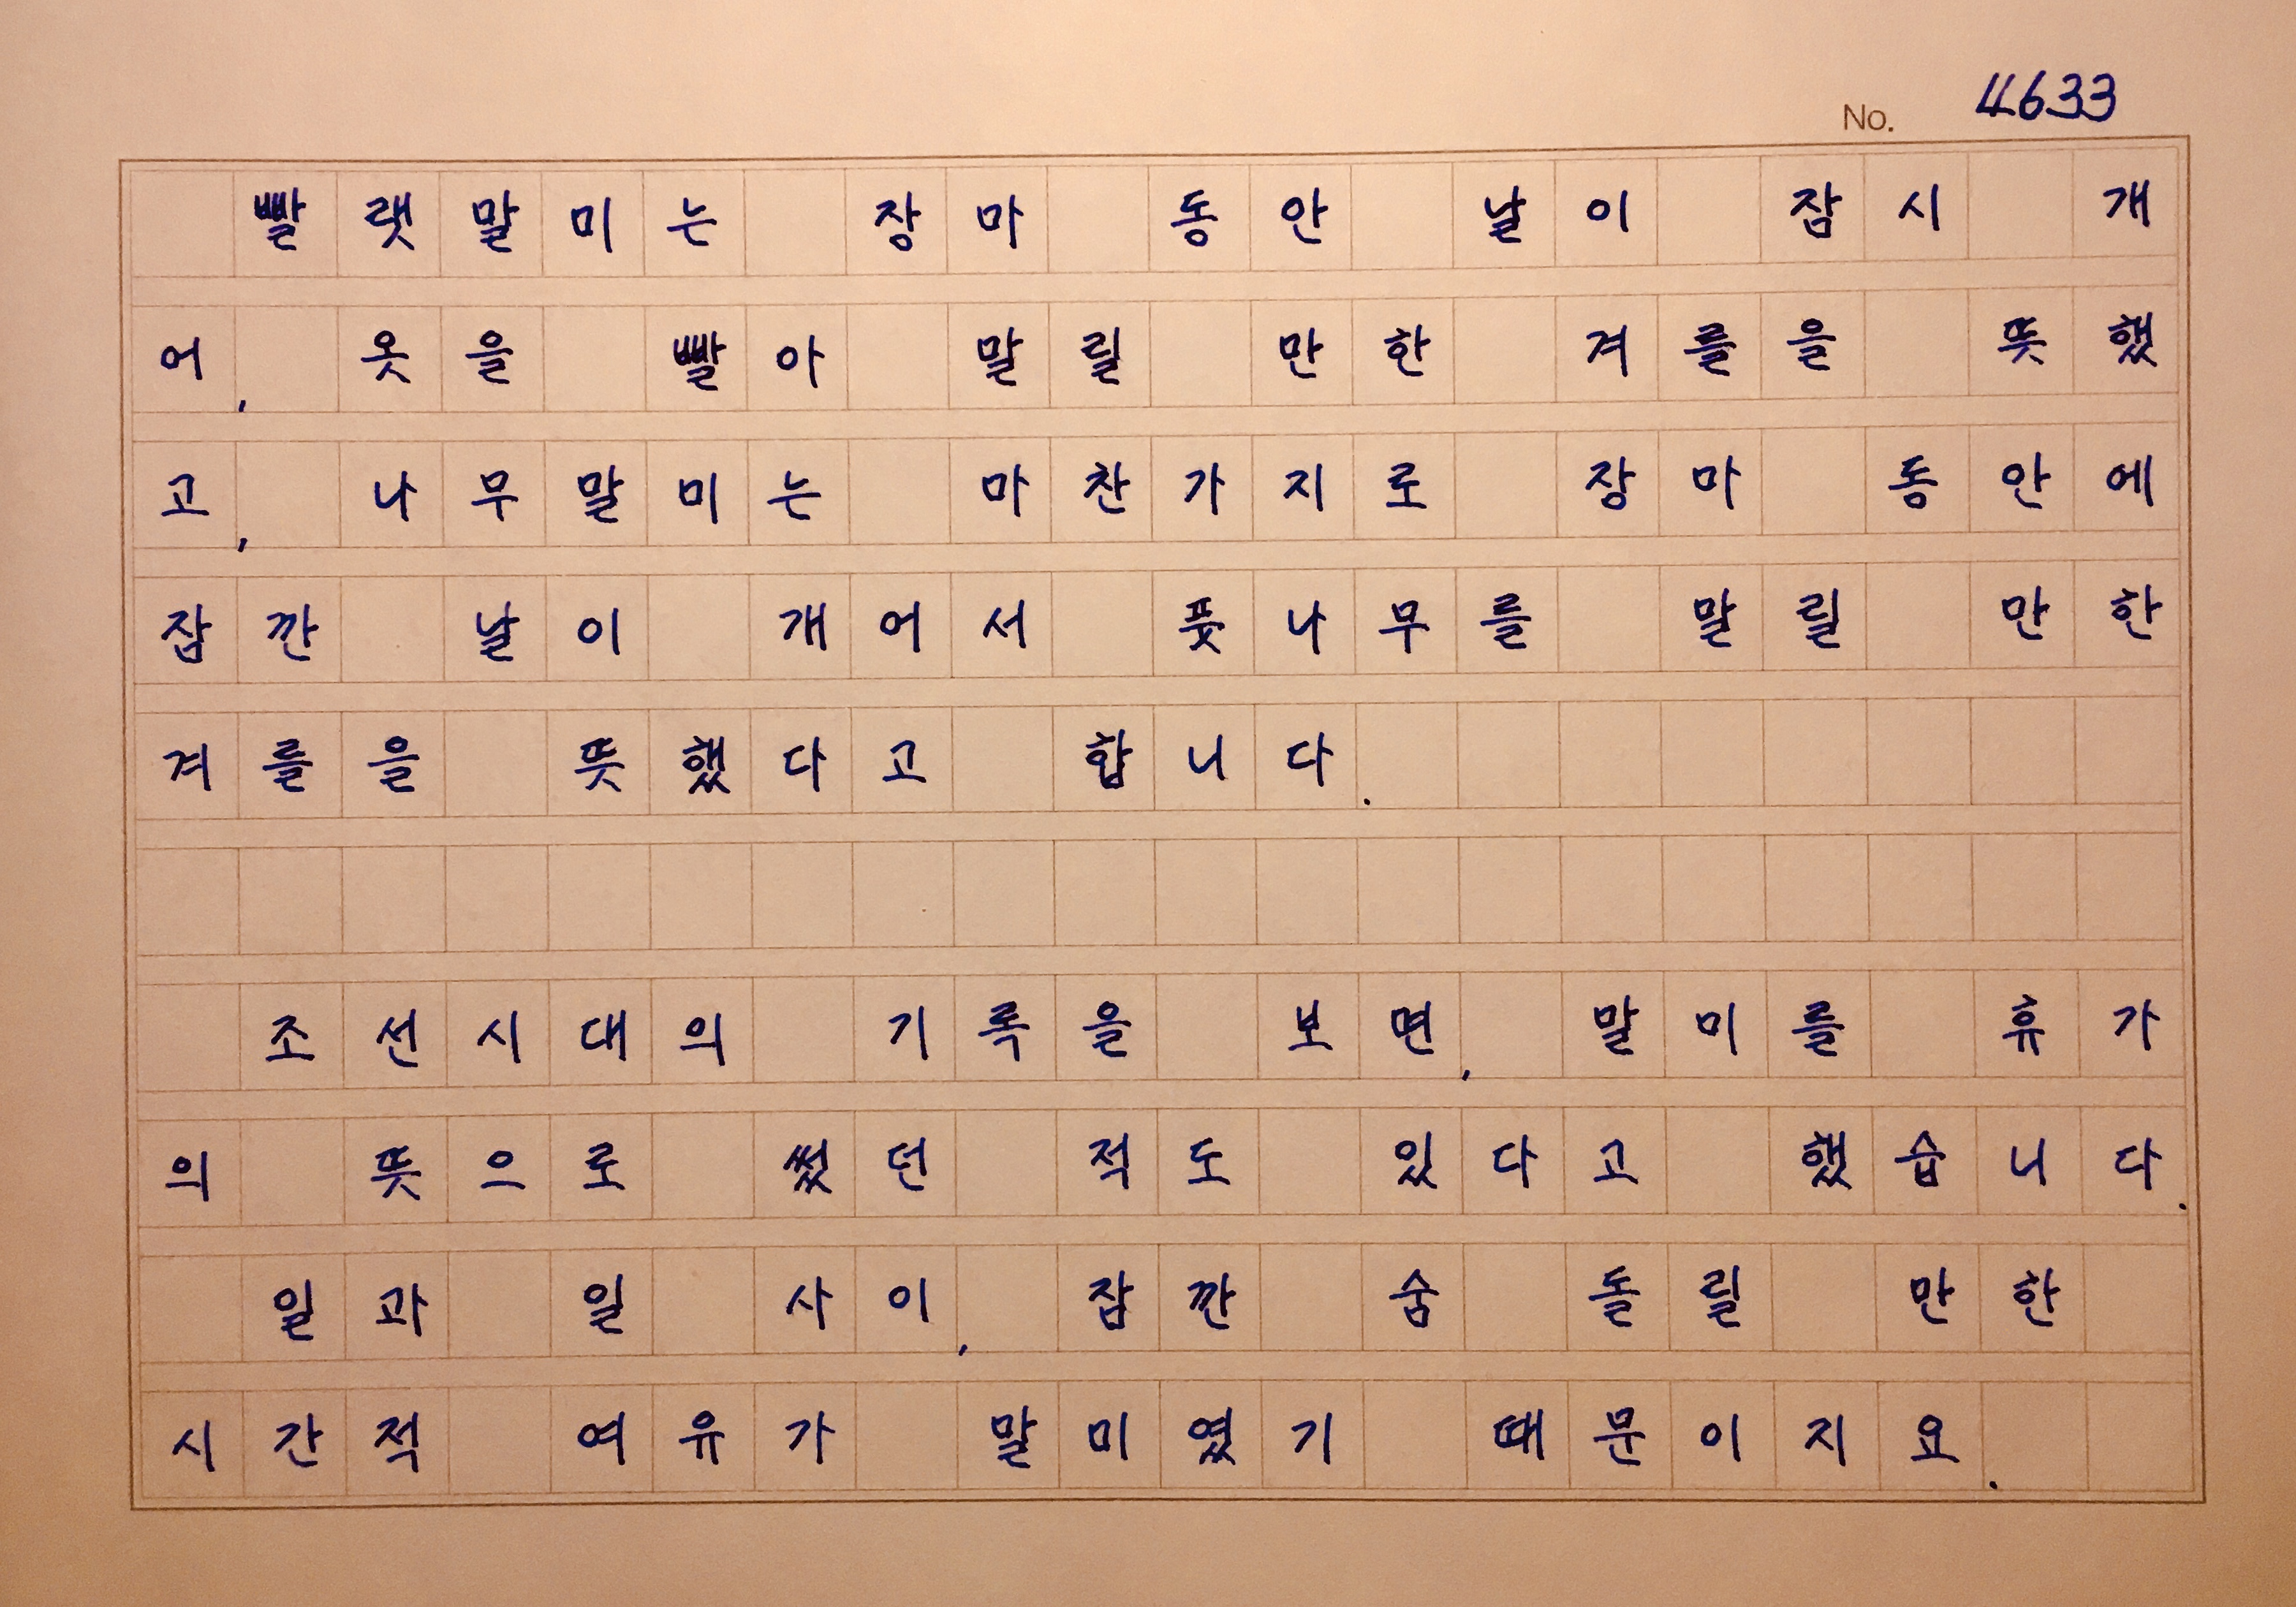 No. 4633
빨랫말미는 장마 동안 날이 잠시 개
어, 옷을 빨아 말릴 만한 겨를을 뜻했
고, 나무말미는 마찬가지로 장마 동안에
잠깐 날이 개어서 풋나무를 말릴 만한
겨를을 뜻했다고 합니다.
조선시대의 기록을 보면, 말미를 휴가
의 뜻으로 썼던 적도 있다고 했습니다.
일과 일 사이, 잠깐 숨 돌릴 만한
시간적 여유가 말미였기 때문이지요.